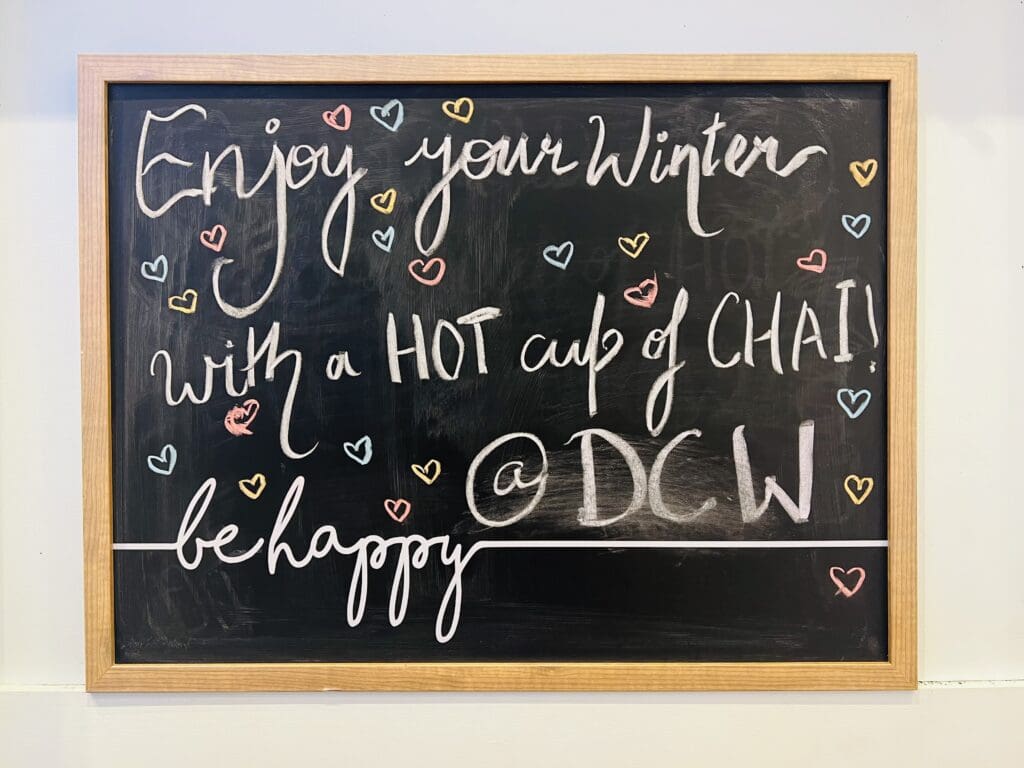 Enjoy your Winter
with a HOT cup of CHAI!
@DCW
be happy